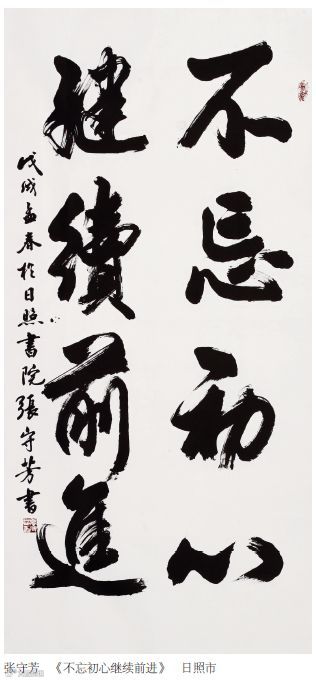 不忘初心
繼續前進
戊戌孟春於日照書院張守芳書
张守芳　《不忘初心继续前进》　日照市